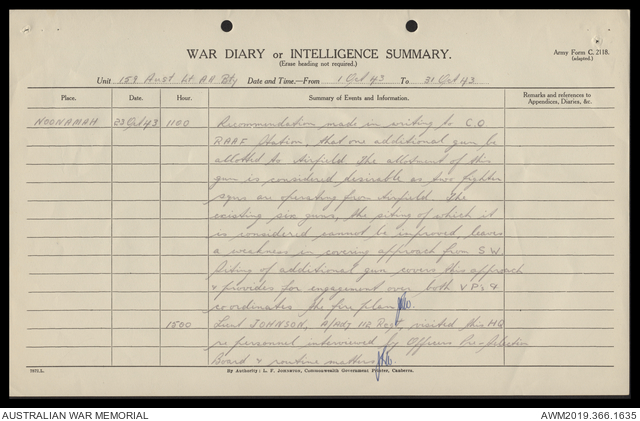 WAR DIARY or INTELLIGENCE SUMMARY.
(Erase heading not required.)
Army Form C. 2118.
(adapted.)
Unit 159 Aust Lt AA Bty Date and Time.—From 1 Oct 43 To 31 Oct 43.
Place. Date. Hour. Summary of Events and Information. Remarks and references to Appendices, Diaries, &c.
NOONAMAH 23 Oct 43 1100 Recommendation made in writing to C.O.
RAAF Station, that one additional gun be
allotted to Airfield. The allotment of this
gun is considered desirable as two fighter
sqns are operating from Airfield. The
existing six guns, the siting of which it
is considered cannot be improved, leave
a weakness in covering approach from S W
Siting of additional gun covers this approach
& provides for engagement over both V Ps &
coordinates the fire plan.
1500 Lieut JOHNSON, A/Adj 112 Regt, visited this HQ
re personnel interviewed by Officers Pre-Selection
Board & routine matters
By Authority: L. F. Johnston, Commonwealth Government Printer, Canberra.
AUSTRALIAN WAR MEMORIAL
AWM2019.366.1635